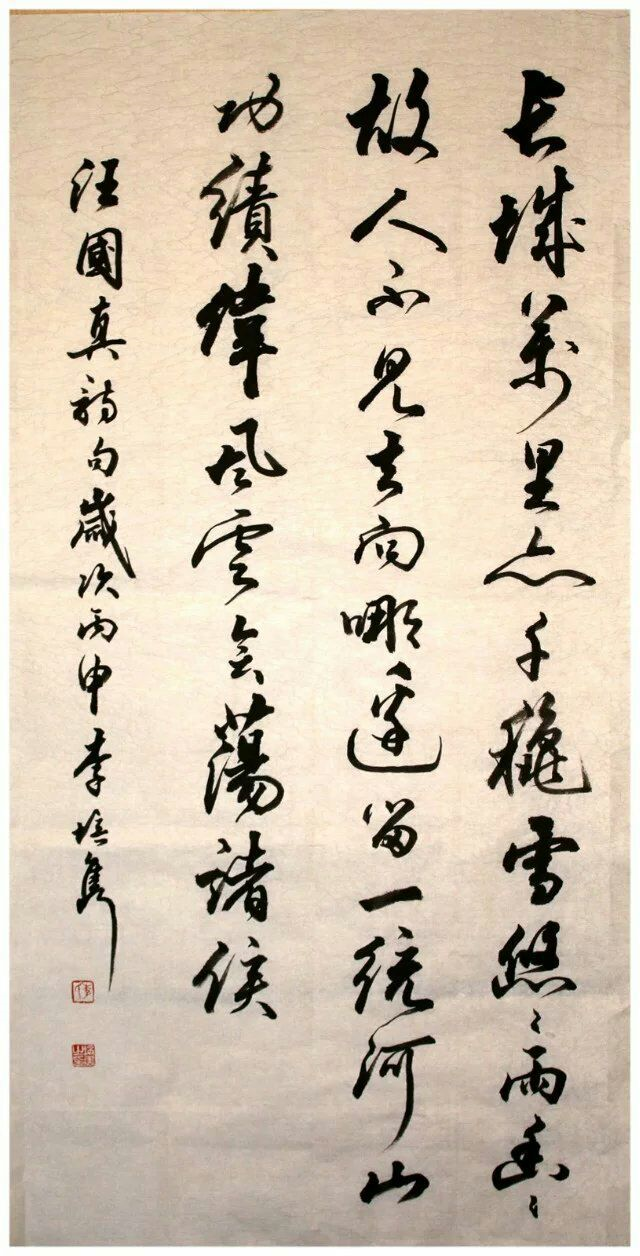 长城萬里亦千龝雪悠〻雨幽〻
故人不見去向哪邊留一統河山
功績偉風雲会蕩諸侯
汪國真詩句歲次丙申李培隽